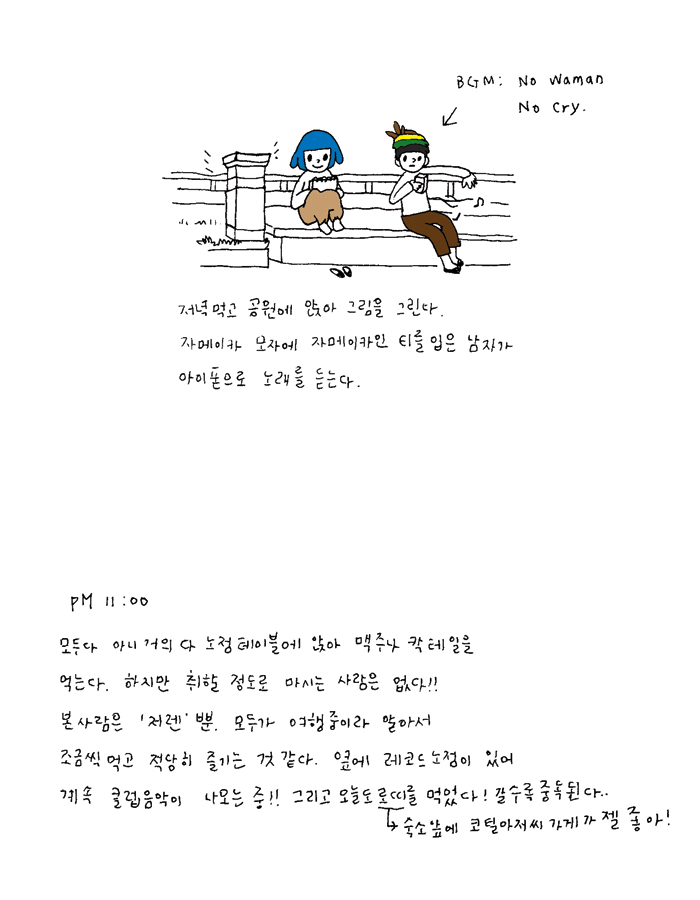 BGM: No Waman
No Cry.
저녁먹고 공원에 앉아 그림을 그린다.
자메이카 모자에 자메이카인 티를 입은 남자가
아이폰으로 노래를 듣는다.
PM 11:00
모두다 아니 거의 다 노점테이블에 앉아 맥주나 칵테일을
먹는다. 하지만 취할 정도로 마시는 사람은 없다!!
본사람은 '저렌' 뿐. 모두가 여행중이라 알아서
조금씩 먹고 적당히 즐기는 것 같다. 옆에 레코드노점이 있어
계속 클럽음악이 나오는 중!! 그리고 오늘도로띠를 먹었다! 갈수록중독된다..
숙소앞에 코털아저씨 가게가 젤 좋아!